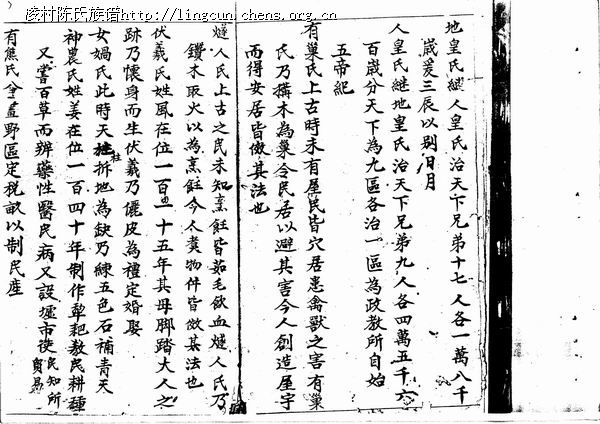 凌村陈氏族谱http://lingcun.chens.org.cn
地皇氏繼人皇氏治天下兄弟十七人各一萬八千
歲爰三辰以別日月
人皇氏繼地皇氏治天下兄弟九人各四萬五千六
百歲分天下為九區各治一區為政教所自始
五帝紀
有巢氏上古時未有屋民皆穴居患禽獸之害有巢
氏乃構木為巢令民居以避其害今人創造屋宇
而得安居皆倣其法也
燧人氏上古之民未知烹飪皆茹毛飲血燧人氏乃
鑽木取火以為烹飪今人煑物件皆倣其法也
伏羲氏姓風在位一百一十五年其母脚踏大人之
跡乃懷身而生伏羲乃儷皮為禮定婚娶
女媧氏此時天柱拆地為缺乃練五色石補青天
神農氏姓姜在位一百四十年制作耒耜教民耕種
又嘗百草而辨藥性醫民病又設墟市使民知所貿易
有熊氏令畫野區定税畝以制民産